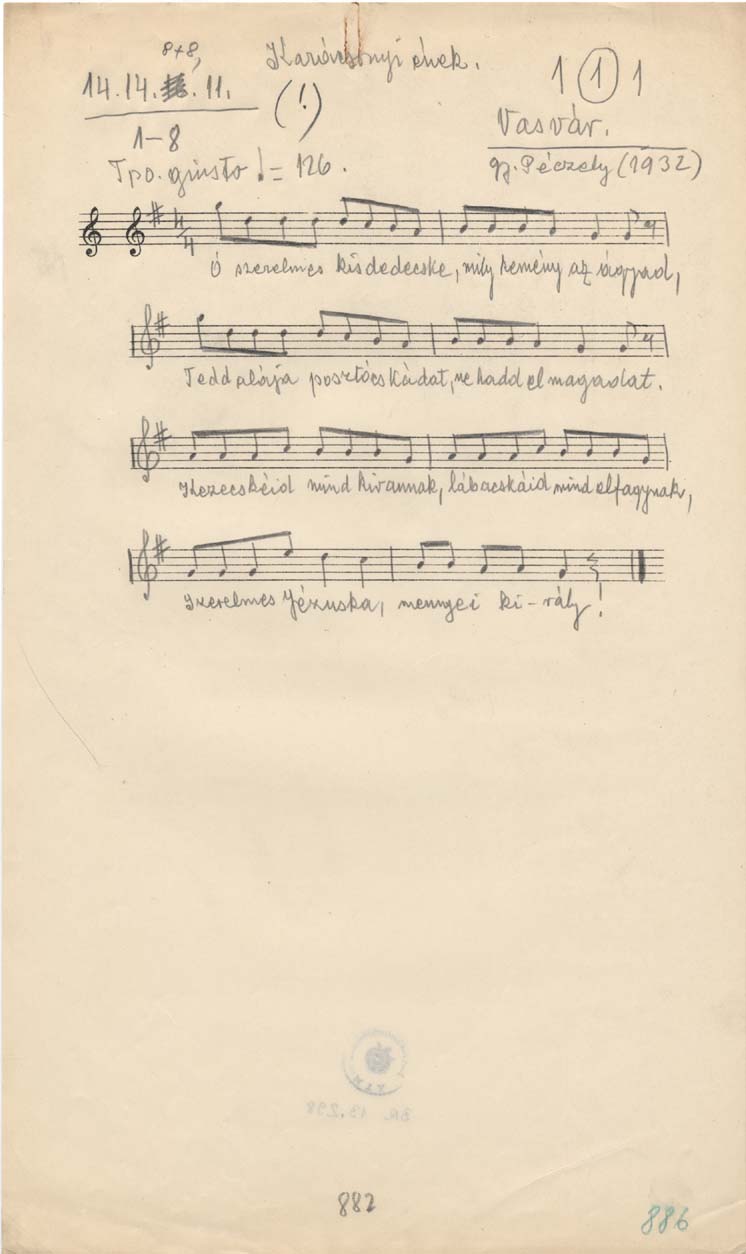 8+8,
Karácsonyi ének.
14.14. . 11.
(!)
1 1 1
1-8
Vasvár.
Tpo. giusto ♩= 126.
gy. Péczely (1932)
4/4
Ó szerelmes kisdedecske, mily kemény az ágyad,
Tedd alája posztócskádat, ne hadd el magadat.
Kezecskéid mind kivannak, lábacskáid mind elfagynak,
Szerelmes Jézuska, mennyei ki-rály!
BR. 13.298
882
886